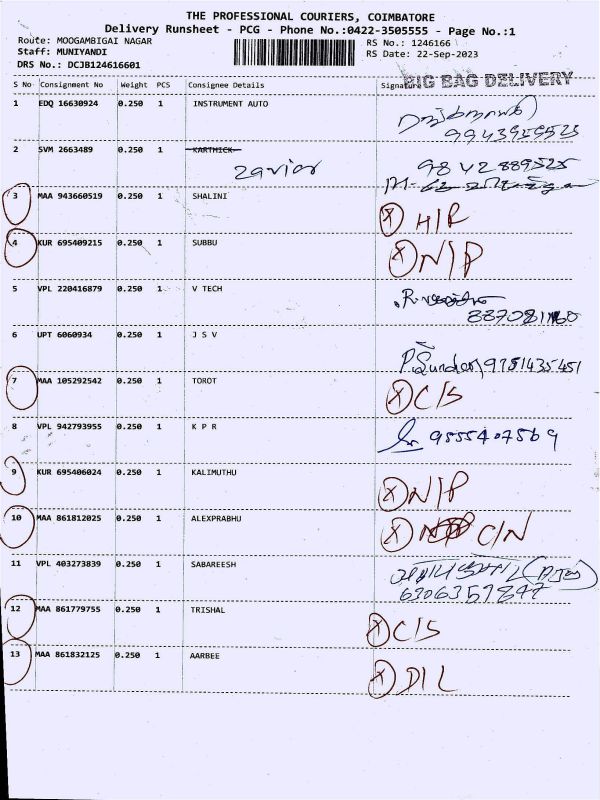 THE PROFESSIONAL COURIERS, COIMBATORE
Delivery Runsheet - PCG - Phone No.:0422-3505555 - Page No.:1
Route: MOOGAMBIGAI NAGAR
RS No.: 1246166
Staff: MUNIYANDI
RS Date: 22-Sep-2023
DRS No.: DCJB124616601
BIG BAG DELIVERY
S No Consignment No Weight PCS Consignee Details Signature
1 EDQ 16630924 0.250 1 INSTRUMENT AUTO
9943959523
2 SVM 2663489 0.250 1 KARTHICK
zavior 9842889525
3 MAA 943660519 0.250 1 SHALINI
X H/R
4 KUR 695409215 0.250 1 SUBBU
X N/P
5 VPL 220416879 0.250 1 V TECH
6 UPT 6060934 0.250 1 J S V
P. Sundar 9751435451
7 MAA 105292542 0.250 1 TOROT
X C/S
8 VPL 942793955 0.250 1 K P R
9555407569
9 KUR 695406024 0.250 1 KALIMUTHU
X N/P
10 MAA 861812025 0.250 1 ALEXPRABHU
X C/N
11 VPL 403273839 0.250 1 SABAREESH
6306357847
12 MAA 861779755 0.250 1 TRISHAL
X C/S
13 MAA 861832125 0.250 1 AARBEE
X D/L